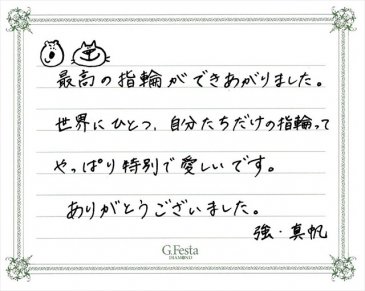 最高の指輪ができあがりました。
世界にひとつ、自分たちだけの指輪って
やっぱり特別で愛しいです。
ありがとうございました。
強・真帆
G.Festa
DIAMOND